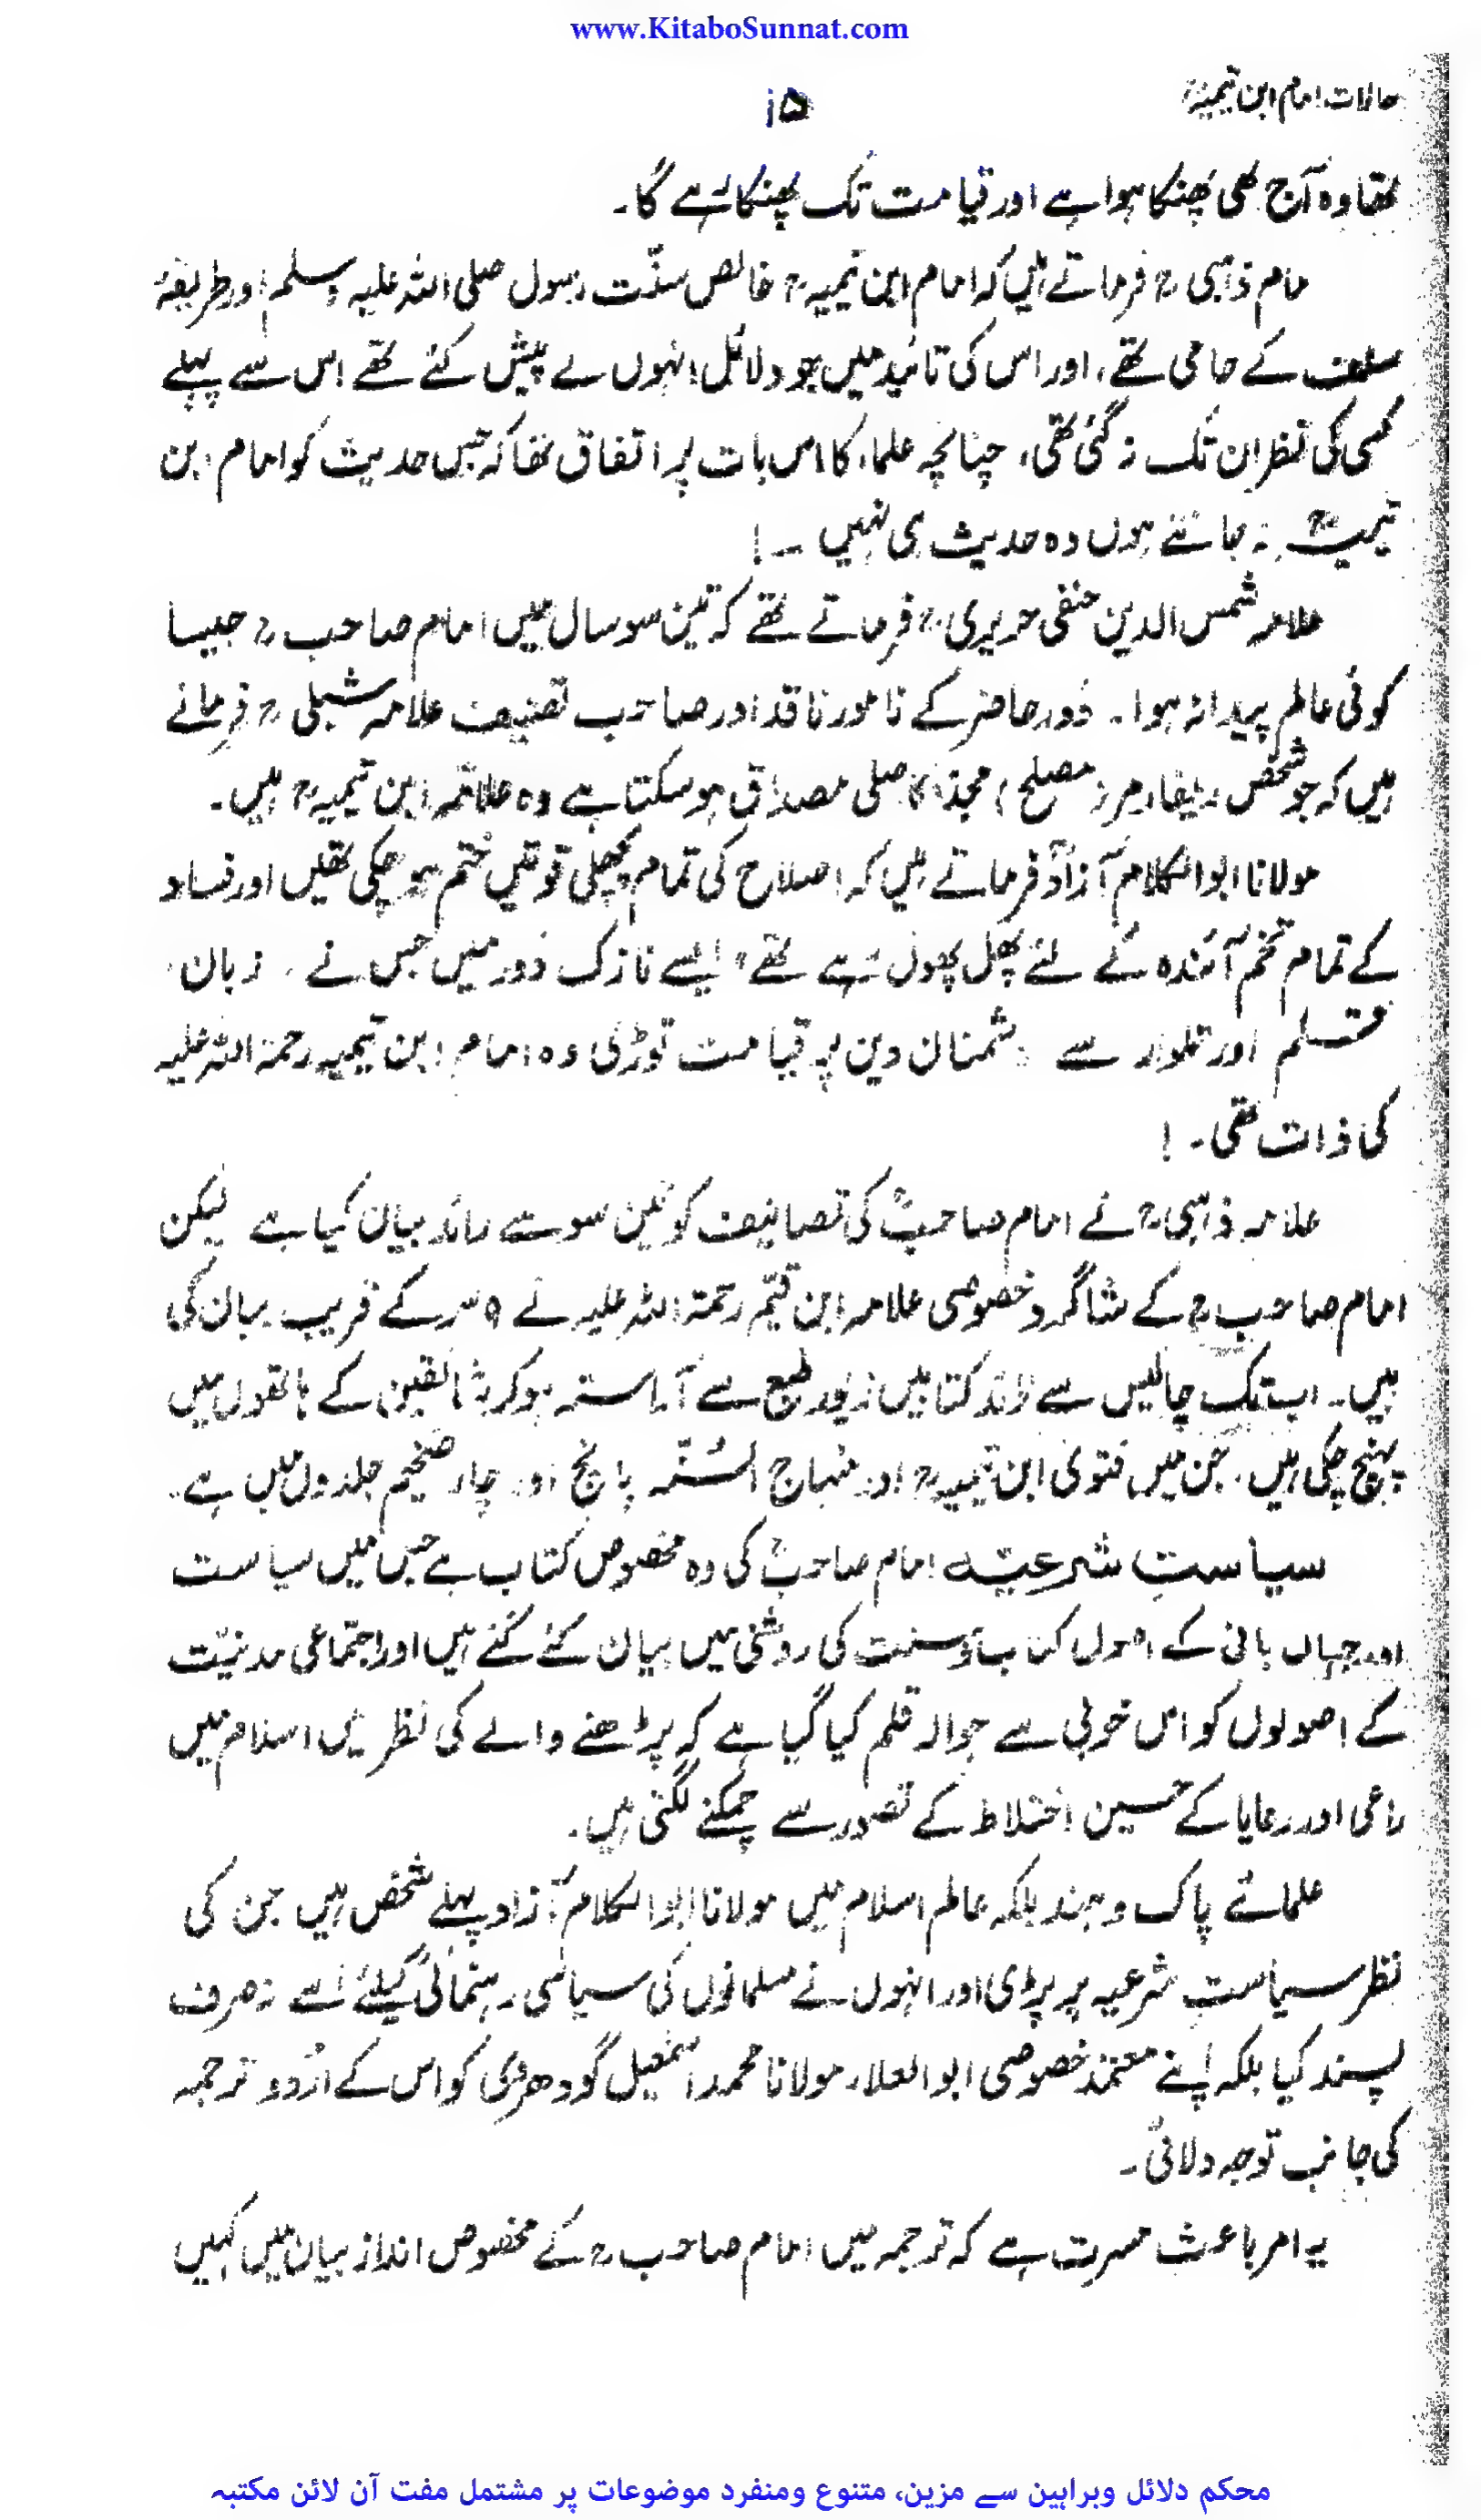 www.KitaboSunnat.com
حالات امام ابن تیمیہؒ
۱۵
تھا وہ آج بھی پھنکا ہوا ہے اور قیامت تک پھنکا رہے گا۔
امام ذہبیؒ فرماتے ہیں کہ امام ابن تیمیہؒ خالص سنّت رسول صلی اللہ علیہ وسلم اور طریقۂ
سلف کے حامی تھے، اور اس کی تائید میں جو دلائل انہوں نے پیش کئے تھے اس سے پہلے
کسی کی نظر ان تک نہ گئی تھی، چنانچہ علماء کا اس بات پر اتفاق تھا کہ جس حدیث کو امام ابن
تیمیہؒ نہ جانتے ہوں وہ حدیث ہی نہیں ۔!
علامہ شمس الدین حنفی حریریؒ فرماتے تھے کہ تین سو سال میں امام صاحبؒ جیسا
کوئی عالم پیدا نہ ہوا۔ دَور حاضر کے نامور ناقد اور صاحب تصنیف علامہ شبلیؒ فرماتے
ہیں کہ جو شخص ریفارمر (مصلح) مجدد کا اصلی مصداق ہو سکتا ہے وہ علامہ ابن تیمیہؒ ہیں۔
مولانا ابوالکلام آزادؒ فرماتے ہیں کہ اصلاح کی تمام پچھلی قوتیں ختم ہو چکی تھیں اور فساد
کے تمام تخم آئندہ کے لئے پھل پھول رہے تھے، ایسے نازک دَور میں جس نے، زبان،
قلم اور تلوار سے دشمنان دین پر قیامت توڑی وہ امام ابن تیمیہ رحمۃ اللہ علیہ
کی ذات تھی۔!
علامہ ذہبیؒ نے امام صاحبؒ کی تصانیف کو تین سو سے زائد بیان کیا ہے لیکن
امام صاحبؒ کے شاگرد خصوصی علامہ ابن قیّم رحمۃ اللہ علیہ نے کے قریب بیان کی
ہیں۔ اب تک چالیس سے زائد کتابیں زیور طبع سے آراستہ ہو کر شائقین کے ہاتھوں میں
پہنچ چکی ہیں، جن میں فتویٰ ابن تیمیہؒ اور منہاج السُنّہ پانچ اور چار ضخیم جلدوں میں ہے۔
سیاستِ شرعیّہ امام صاحبؒ کی وہ مخصوص کتاب ہے جس میں سیاست
اور جہاں بانی کے اصول کتاب و سنت کی روشنی میں بیان کئے گئے ہیں اور اجتماعی مدنیّت
کے اصولوں کو اس خوبی سے حوالہ قلم کیا گیا ہے کہ پڑھنے والے کی نظریں اسلام میں
راعی اور رعایا کے حسین اختلاط کے تصور سے چمکنے لگتی ہیں۔
علمائے پاک و ہند بلکہ عالم اسلام میں مولانا ابوالکلام آزاد پہلے شخص ہیں جن کی
نظر سیاست شرعیہ پر پڑی اور انہوں نے مسلمانوں کی سیاسی رہنمائی کیلئے اسے نہ صرف
پسند کیا بلکہ اپنے معتمد خصوصی ابوالعلاء مولانا محمد اسمٰعیل گودھروی کو اس کے اُردو ترجمہ
کی جانب توجہ دلائی۔
یہ امر باعث مسرت ہے کہ ترجمہ میں امام صاحبؒ کے مخصوص انداز بیان میں کہیں
محکم دلائل وبراہین سے مزین، متنوع ومنفرد موضوعات پر مشتمل مفت آن لائن مکتبہ